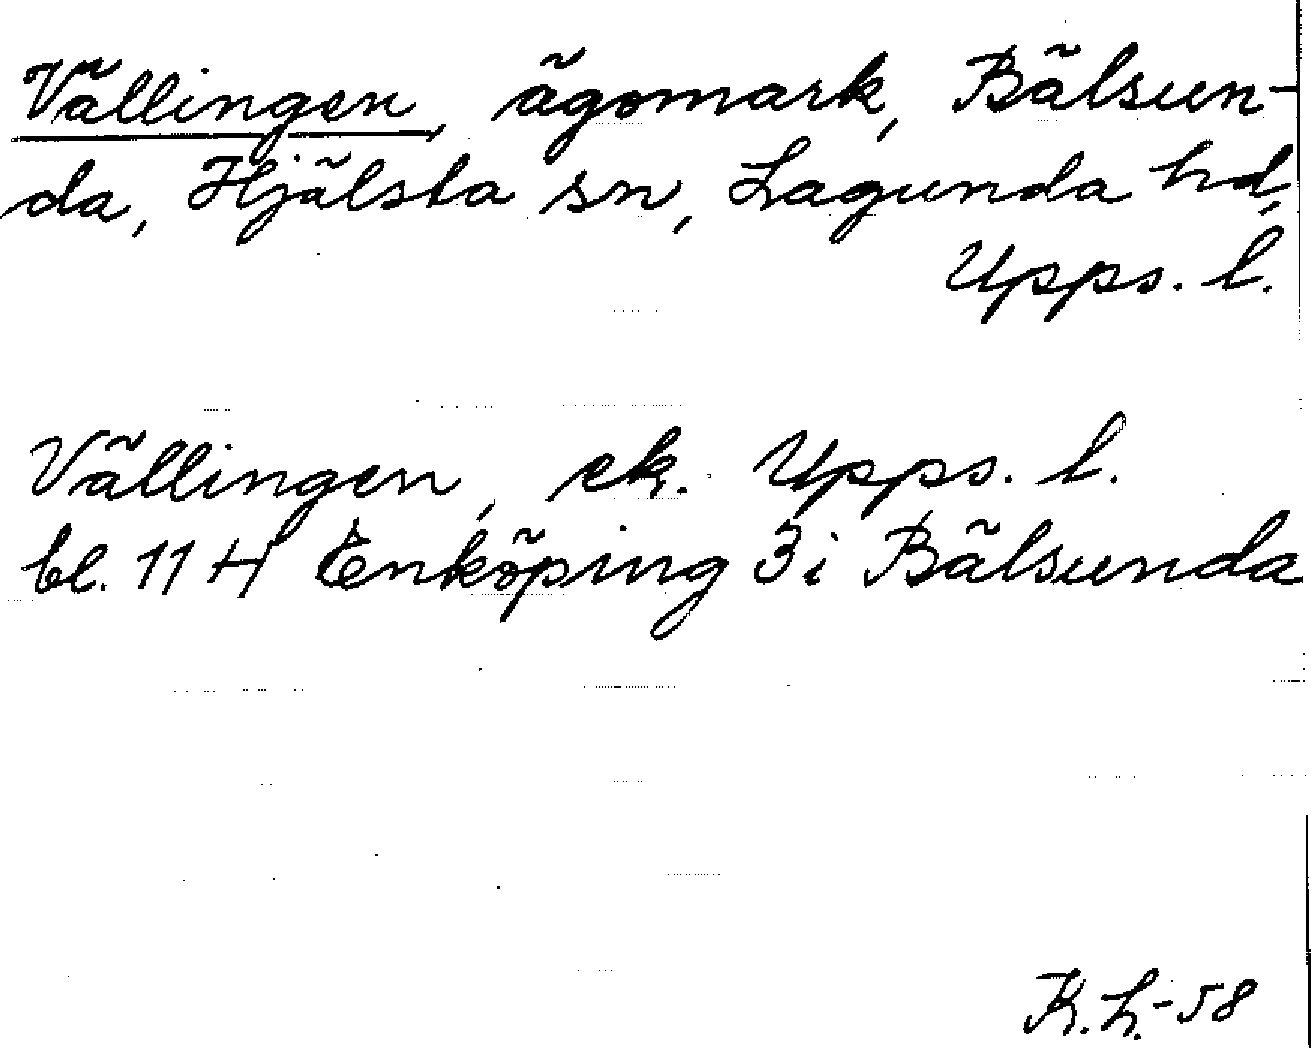 Vällingen, ägomark, Bälsun-
da, Hjälsta sn, Lagunda hd,
Upps. l.
Vällingen, ek. Upps. l.
bl. 11 H Enköping 3 i Bälsunda
K. L. -58